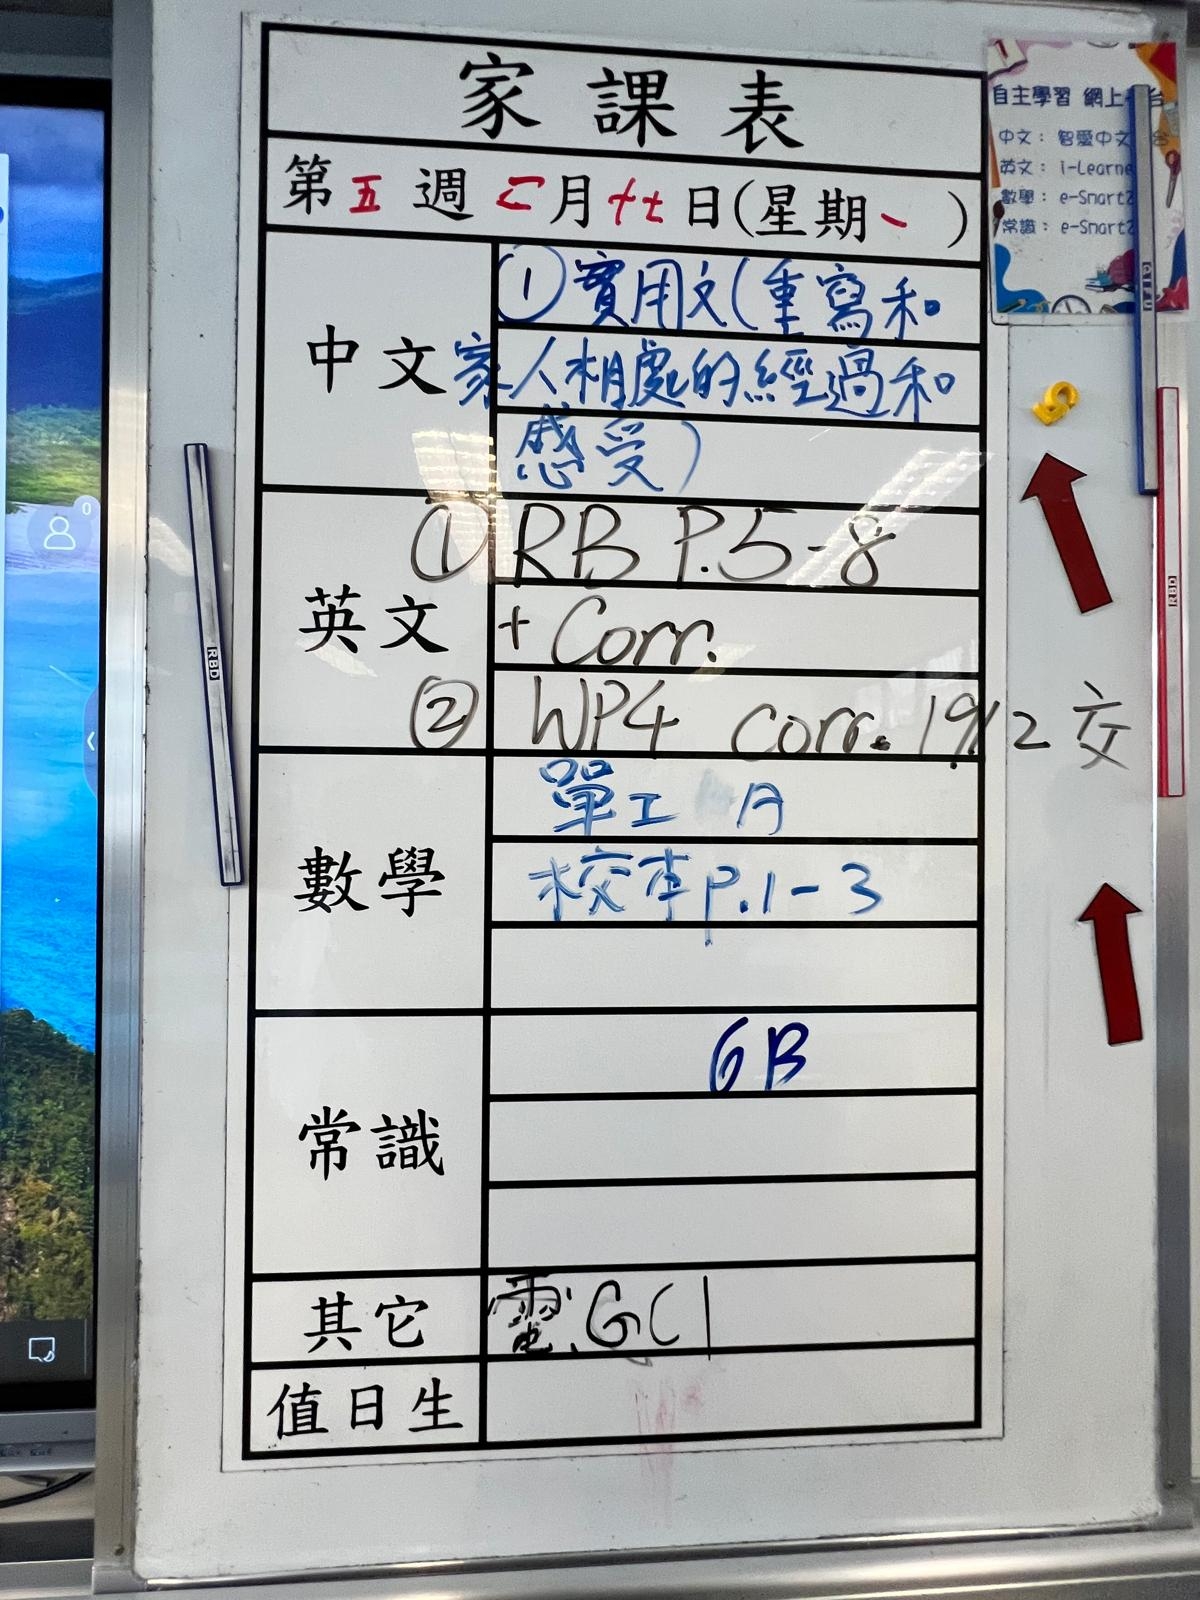 家課表
第五週二月十七日(星期一 )
中文
①實用文(重寫和
家人相處的經過和
感受)
英文
① RB P.5-8
+ Corr.
② WP4 corr. 19/2 交
數學
單工 A
校本P.1-3
常識
6B
其它
電、GC1
值日生
自主學習 網上 台
中文： 智愛中文 台
英文： i-Learne
數學： e-Smart
常識： e-Smart
RBD
RBD
0